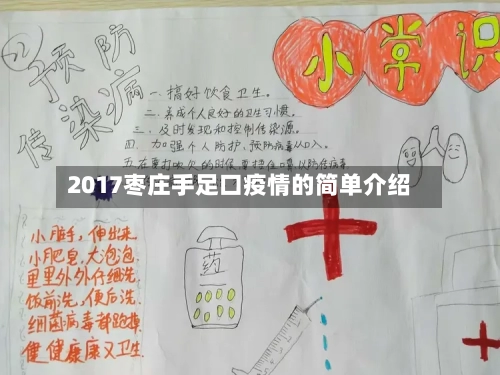 预防
传染病
小常识
一、搞好饮食卫生。
二、养成个人良好的卫生习惯。
三、及时发现和控制传染源。
四、加强个人防护、预防病毒从口入。
五、在要打喷欠的时候要捂住口鼻以防传病毒
2017枣庄手足口疫情的简单介绍
小脏手,伸出来,
小肥皂,大泡泡,
里里外外仔细洗,
饭前洗,便后洗,
细菌病毒都跑掉
健健康康又卫生.
药